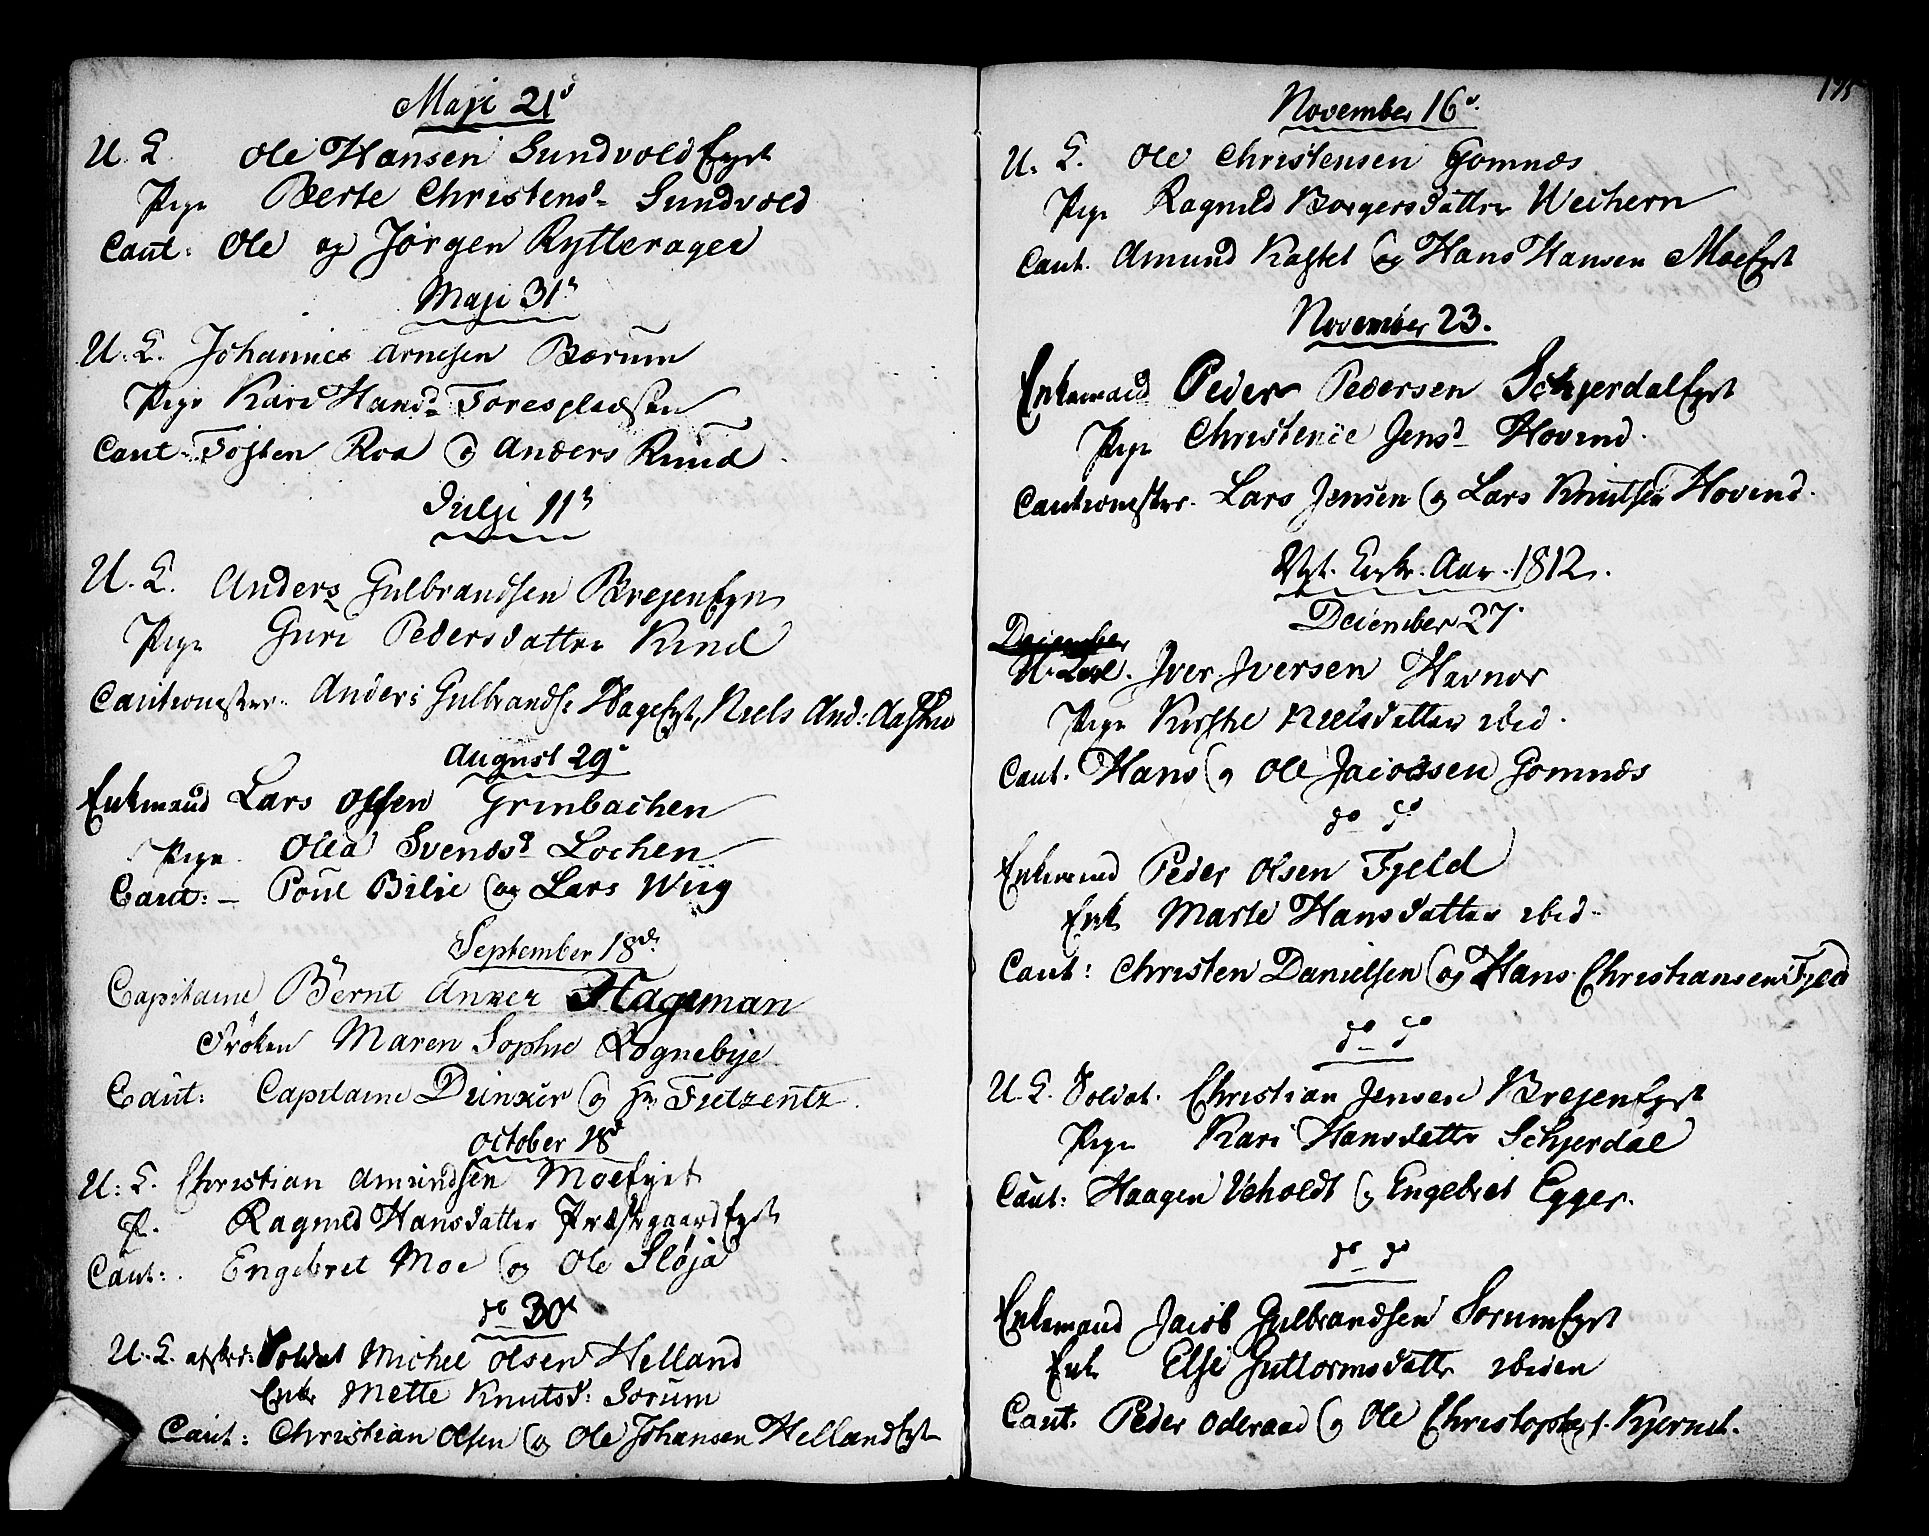 Maji 21
U. L. Ole Hansen Sundvold Eyet
Pige Berte Christensd Sundvold
Caut: Ole og Jørgen Rytterager
Maji 31
U. L. Johannes Arnesen Bærum
Pige Kari Hansd
Caut: Tosten Roa og Anders Ruud
Julji 11
U. L. Anders Gulbrandsen Brejen
Pige Guri Pedersdatter Rud
Cautionister: Anders Gulbrands: Hage Eyet, Niels And:
August 29
Enkmand Lars Olsen Grinbachen
Pige Olea Svendsd Lochen
Caut: – Poul Bilie og Lars Wiig
September 18
Capitaine Bernt Anker Hageman
Frøken Maren Sophie Røgnebye
Caut: Capitaine Dunker og Hr
October 18
U: L. Christian Amundsen Moe
P. Ragnild Hansdatter Præstegaard
Caut: Engebret Moe og Ole Sløja
do 30
U. L. afsked: Soldat Michel Olsen Helland
Enke Mette Knutsd: Sorum
Caut: Christian Olsen og Ole Johansen Helland
175
November 16
U. L. Ole Christensen Gomnæs
Pige Ragnild Borgersdatter Wechern
Caut. Amund Kastet og Hans Hansen Moe
November 23.
Enkemand Peder Pedersen Schjerdal
Pige Christense Jensd Hovind.
Cautionister. Lars Jensen og Lars Knutsen Hovind.
Nyt Kirke Aar 1812.
December 27
December
U. L. Iver Iversen Havnor
Pige Kirstie Nielsdatter ibid.
Caut. Hans og Ole Jacobsen Gomnæs
do do
Enkemand Peder Olsen Fjeld
Enk Marte Hansdatter ibid.
Caut: Christen Danielsen og Hans Christiansen Fjeld
do do
U. L. Soldat. Christian Jensen Brejen
Pige Kari Hansdatter Schjerdal
Caut: Haagen Veholdt og Engebret Egger.
do do
Enkemand Jacob Gulbrandsen Sorum
Enk Else Guttormsdatter ibiden
Caut: Peder Oderaad og Ole Christophers.